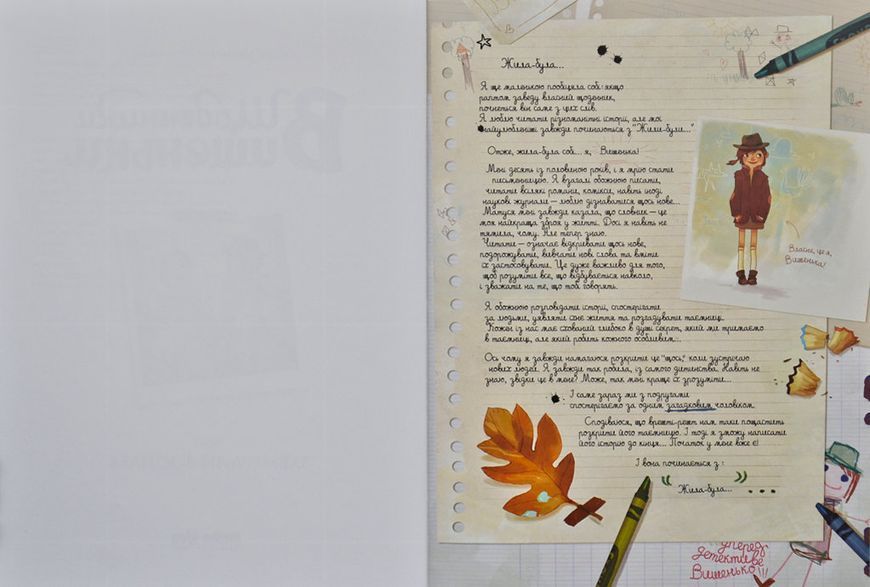 Жила-була...
Я ще маленькою пообіцяла собі: якщо
раптом заведу власний щоденник,
почнеться він саме з цих слів.
Я люблю читати різноманітні історії, але мої
найулюбленіші завжди починаються з "Жили-були..."
Отже, жила-була собі... я, Вишенька!
Мені десять із половиною років, і я мрію стати
письменницею. Я взагалі обожнюю писати,
читати всілякі романи, комікси, навіть іноді
наукові журнали — люблю дізнаватися щось нове...
Матуся мені завжди казала, що словник — це
моя найкраща зброя у житті. Досі я навіть не
тямила, чому. Але тепер знаю.
Читати — означає відкривати щось нове,
подорожувати, вивчати нові слова та вміти
їх застосовувати. Це дуже важливо для того,
щоб розуміти все, що відбувається навколо,
і зважати на те, що тобі говорять.
Я обожнюю розповідати історії, спостерігати
за людьми, уявляти їхнє життя та розгадувати таємниці.
Кожен із нас має схований глибоко в душі секрет, який ми тримаємо
в таємниці, але який робить кожного особливим...
Ось чому я завжди намагаюся розкрити це "щось", коли зустрічаю
нових людей. Я завжди так робила, із самого дитинства. Навіть не
знаю, звідки це в мене? Може, так мені краще їх зрозуміти...
І саме зараз ми з подругами
спостерігаємо за одним загадковим чоловіком.
Сподіваюся, що врешті-решт нам таки пощастить
розкрити його таємницю. І тоді я зможу написати
його історію до кінця... Початок у мене вже є!
І вона починається з:
"Жила-була... "...
Власне, це я,
Вишенька!
Уперед,
детективе
Вишенько!!!